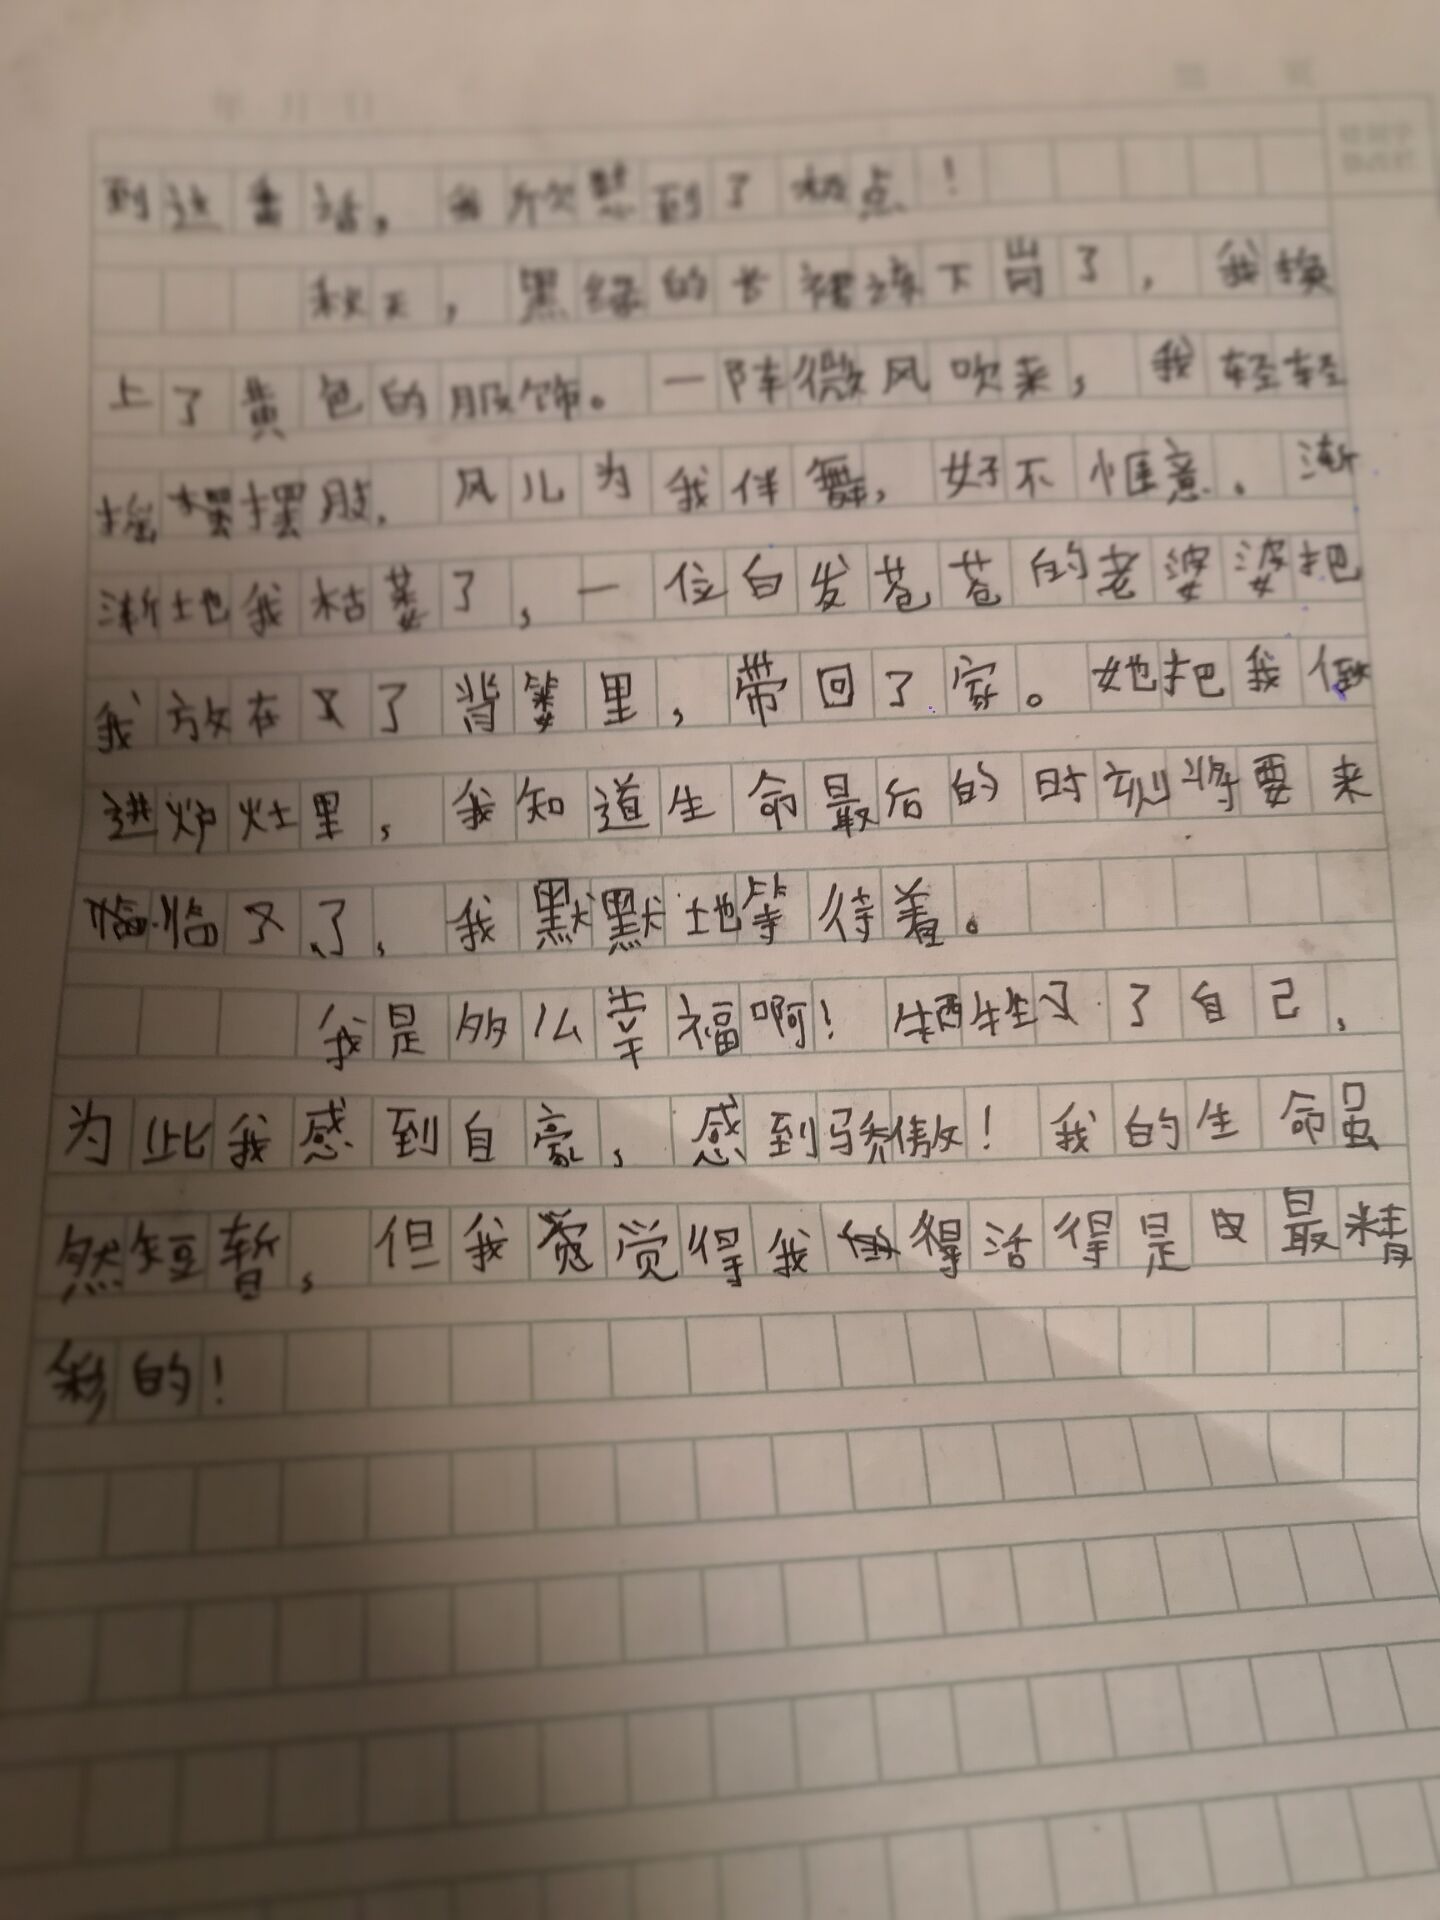 到这番话，我欣慰到了极点！
秋天，黑绿的长裙该下岗了，我换
上了黄色的服饰。一阵微风吹来，我轻轻
摇摆摆肢，风儿为我伴舞，好不惬意。渐
渐地我枯萎了，一位白发苍苍的老婆婆把
我放在了背篓里，带回了家。她把我
进炉灶里，我知道生命最后的时刻将要来
临了，我默默地等待着。
我是多么幸福啊！牺牲了自己，
为此我感到自豪，感到骄傲！我的生命虽
然短暂，但我觉得我活得是最精
彩的！